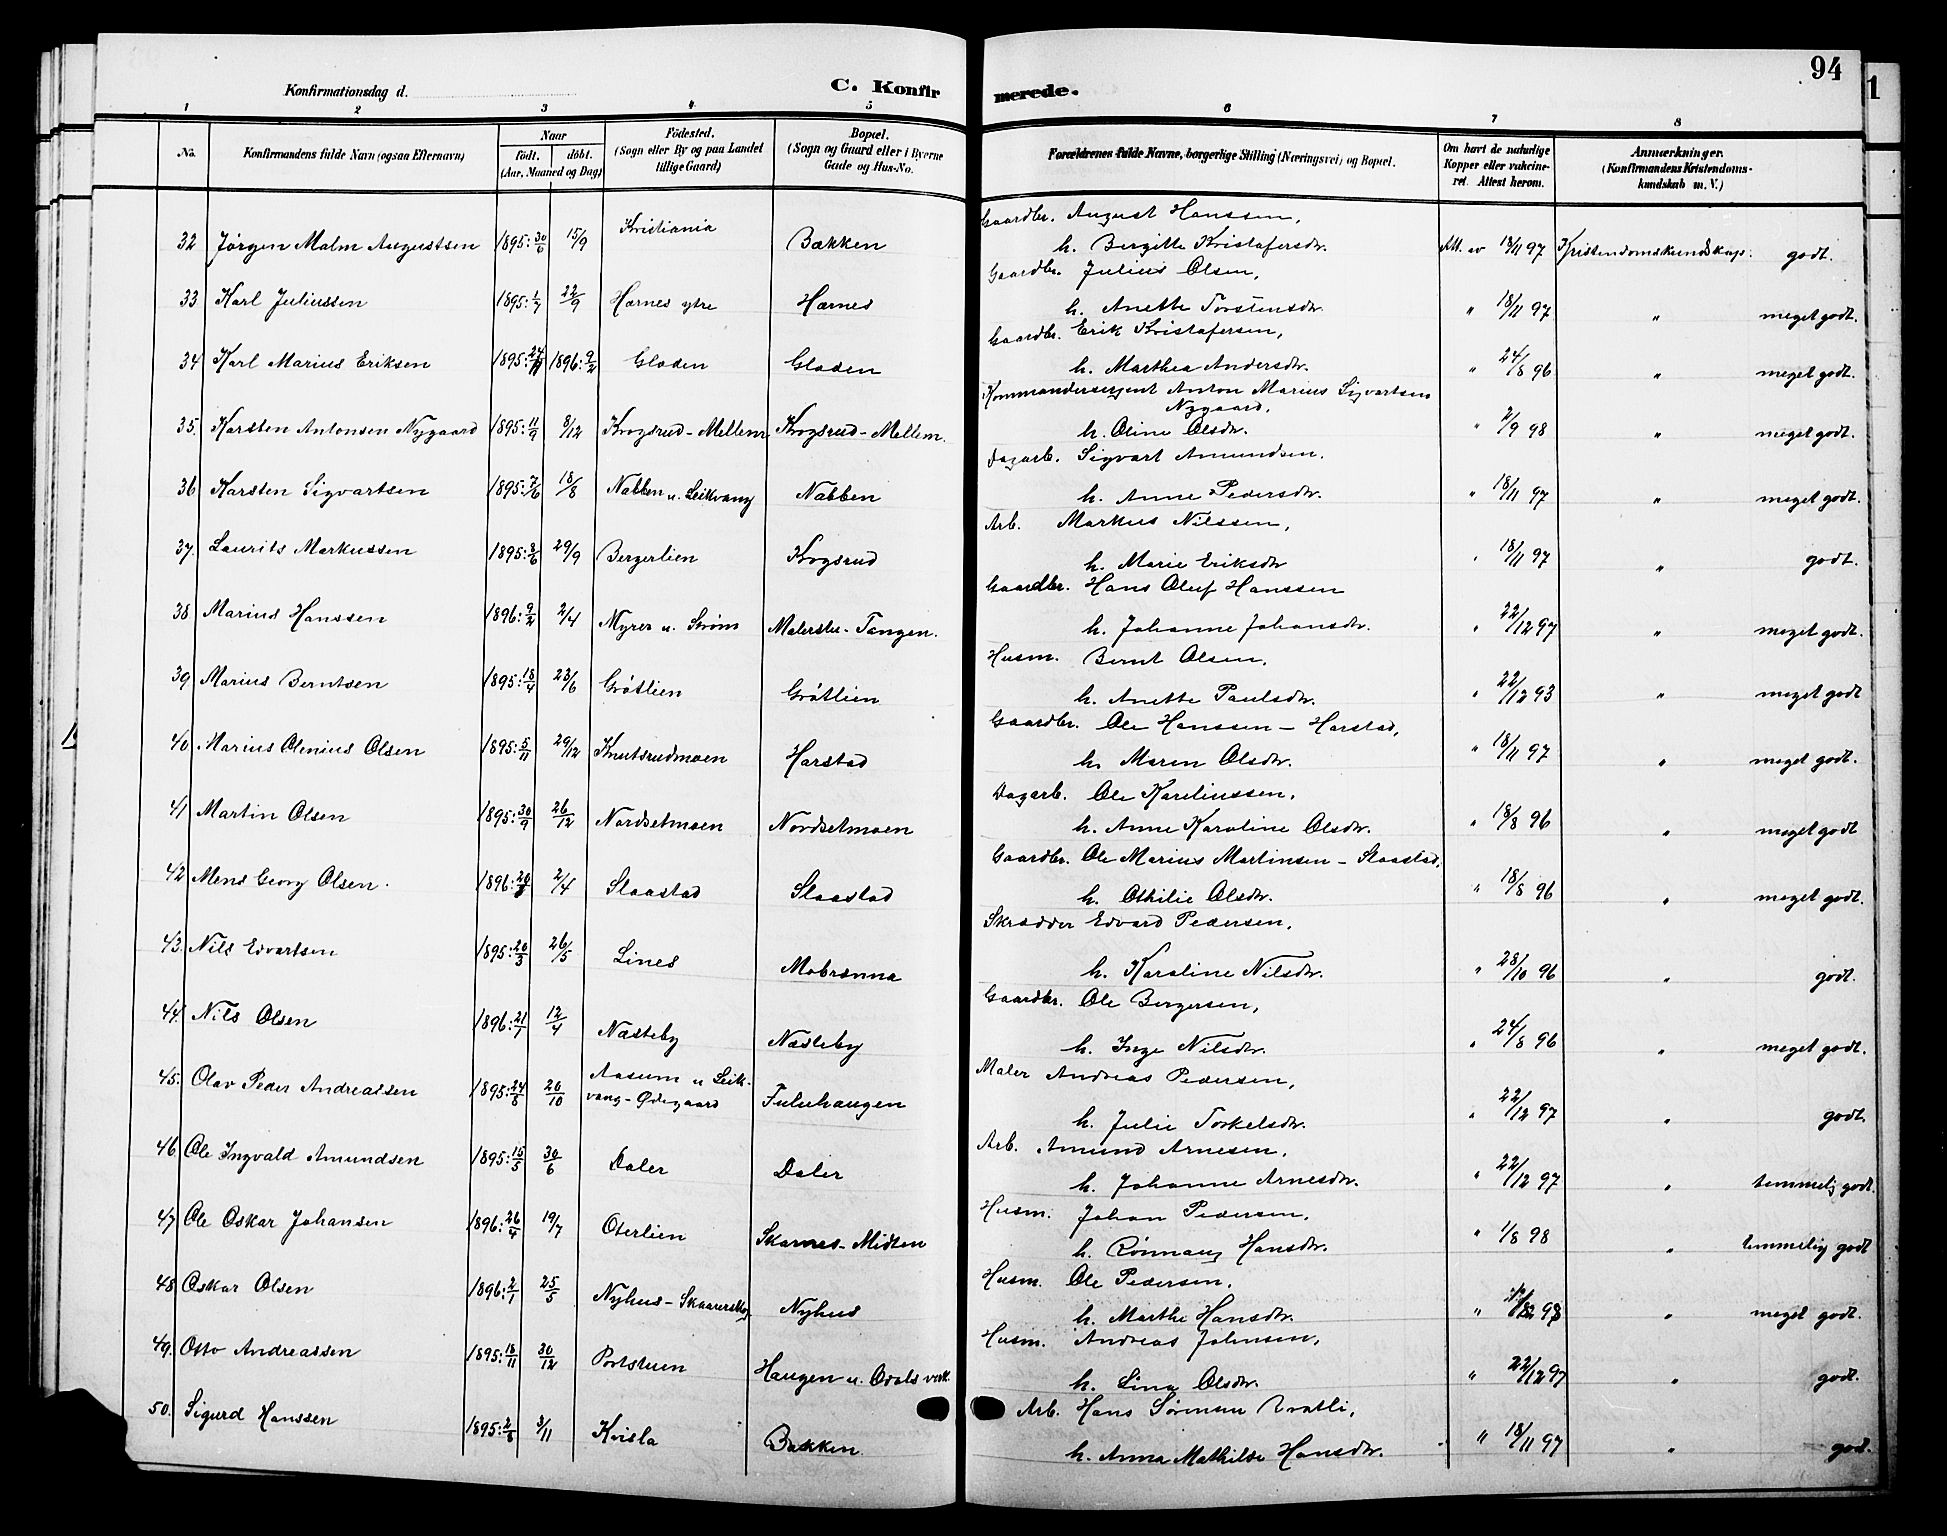 94
1
Konfirmationsdag d.
C. Konfir
merede.
1 2 3 4 5 6 7 8
No. Konfirmandens fulde Navn (ogsaa Efternavn) Naar Födested. Bopæl. Forældrenes fulde Navne, borgerlige Stilling (Næringsvei) og Bopæl. Om havt de naturlige Anmærkninger.
födt. döbt. (Sogn eller By og paa Landet (Sogn og Gaard eller i Byerne Kopper eller vakcine- (Konfirmandens Kristendoms-
(Aar, Maaned og Dag) tillige Gaard) Gade og Hus-No. ret. Attest herom. kundskab m. V.)
Gaardbr. August Hanssen,
32 Jørgen Malm Augustsen 1895: 30/6 15/9 Kristiania Bakken h. Bergitte Kristafersdtr. Att. av 18/11 97 Kristendomskundskap: godt.
Gaardbr. Julius Olsen,
33 Karl Juliussen 1895: 1/7 22/9 Harnes ytre Harnes h. Anette Torstensdtr. " 18/11 97 " meget godt.
Gaardbr. Erik Kristafersen,
34 Karl Marius Eriksen 1895: 24/11 1896: 9/2 Gladen Gladen h. Marthea Andersdtr. " 24/8 96 " meget godt.
Kommandersergent Anton Marius Sigvartsen
Nygaard,
35. Karsten Antonsen Nygaard 1895: 11/9 8/12 Krogsrud-Mellem Krogsrud-Mellem. h. Oline Olsdtr. " 2/9 98 " meget godt.
Dagarb. Sigvart Amundsen.
36 Karsten Sigvartsen 1895: 7/6 18/8 Nabben u. Leikvang Nabben h. Anne Pedersdtr. " 18/11 97 " meget godt.
Arb. Markus Nilssen,
37. Laurits Markussen 1895: 8/6 29/9 Bergerlien Krogsrud h. Marie Eriksdtr " 18/11 97 " godt.
Gaardbr. Hans Oluf Hanssen
38. Marius Hanssen 1896: 9/2 2/4 Myrer u. Strøm Malerstu-Tangen. h. Johanne Johansdtr. " 22/12 97 " meget godt.
Husm. Bernt Olsen,
39 Marius Berntsen 1895: 18/4 23/6 Grøtlien Grøtlien h. Anette Paulsdtr. " 22/12 93 " meget godt
Gaardbr. Ole Hanssen - Harstad,
40 Marius Olenius Olsen 1895: 5/11 29/12 Knutsrudmoen Harstad h. Maren Olsdtr. " 18/11 97 " meget godt.
Dagarb. Ole Kareliussen,
41 Martin Olsen 1895: 30/9 26/12 Nordsetmoen Nordsetmoen h. Anne Karoline Olsdtr. " 18/8 96 " meget godt
Gaardbr. Ole Marius Martinsen - Slaastad,
42 Mens Georg Olsen. 1896: 2/4 Slaastad Slaastad h. Othilie Olsdtr. " 18/8 96 " meget godt.
Skrædder Edvard Pedersen,
43. Nils Edvartsen 1895: 20/3 26/5 Lines Mobrænna h. Karoline Nilsdtr. " 28/10 96 " godt.
Gaardbr. Ole Bergersen,
44. Nils Olsen 1896: 21/1 12/4 Næsteby Næsteby h. Inge Nilsdtr. " 24/8 96 " meget godt.
Maler Andreas Pedersen,
45. Olav Peder Andreassen 1895: 24/8 20/10 Aasum u Leik- Fuluhaugen
vang-Ødegaard h. Julie Torkelsdtr. " 22/12 97 " godt.
Arb. Amund Arnesen,
46 Ole Ingvald Amundsen 1895: 15/5 30/6 Daler Daler h. Johanne Arnesdtr. " 22/12 97 " temmelig godt.
Husm. Johan Pedersen,
47 Ole Oskar Johansen 1896: 26/4 19/7 Oterlien Skarnes-Midten h. Rønnaug Hansdtr. " 1/8 98 " temmelig godt
Husm. Ole Pedersen,
48 Oskar Olsen 1896: 2/1 25/5 Nyhus-Skaarerskog Nyhus h. Marthe Hansdtr. " " meget godt.
Husm. Andreas Johnsen,
49. Otto Andreassen 1895: 18/11 30/12 Portstuen Haugen u. Odals verk h. Lina Olsdtr. " 22/12 97 " godt.
Arb. Hans Sørensen Bratli,
50. Sigurd Hanssen 1895: 2/8 3/11 Kvisla Bakken h. Anna Mathilde Hansdtr. " 18/11 97 " godt.